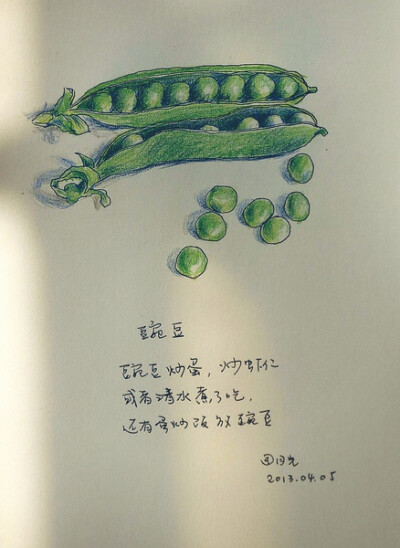 豌豆
豌豆炒蛋，炒虾仁
或者清水煮了吃，
还有蛋炒饭放豌豆
月光
2013.04.05